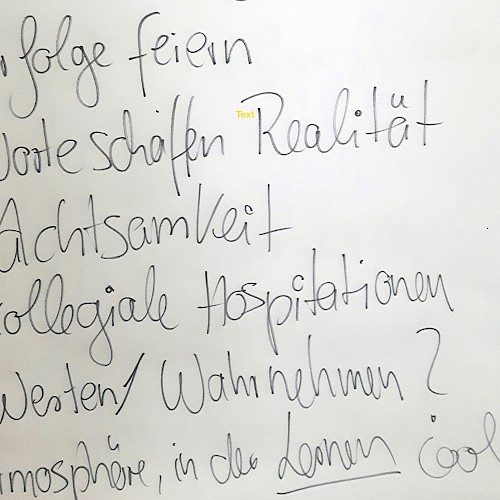 folge feiern
Worte schaffen Text Realität
Achtsamkeit
ollegiale Hospitationen
Werten/ Wahrnehmen?
tmosphäre, in der Lernen cool